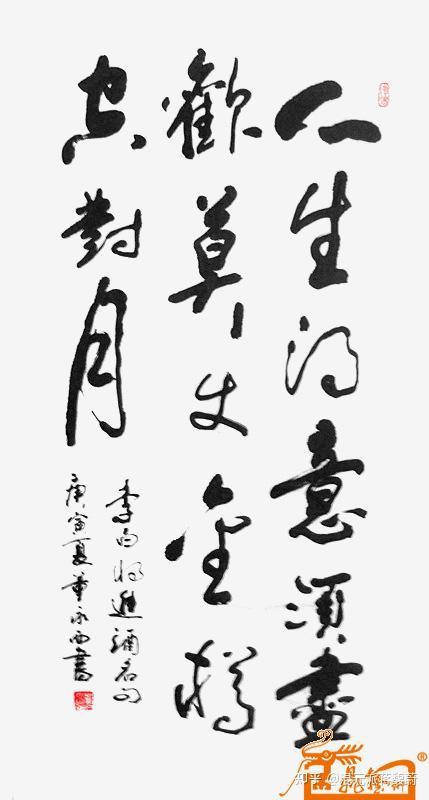 人生得意須盡
歡莫使金樽
空對月
李白將進酒名句
庚寅夏董永西書
知乎